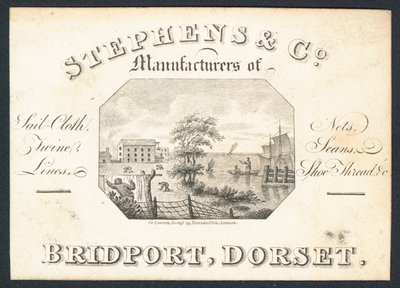 STEPHENS & Co.
Manufacturers of
Sail Cloth,
Twine
Lines.
Nets,
Seans,
Shoe Thread &c.
BRIDPORT, DORSET.